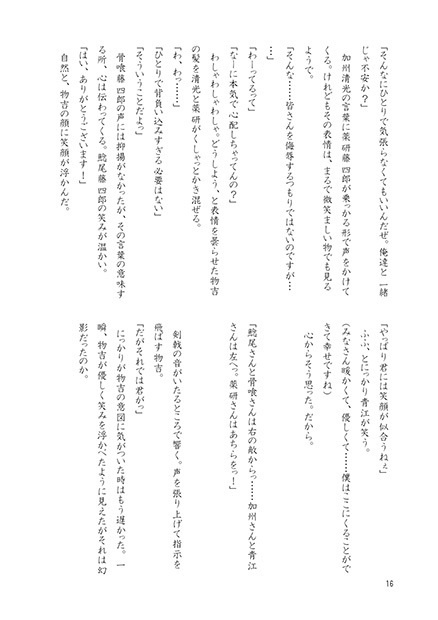 『そんなにひとりで気張らなくてもいいんだぜ。俺達と一緒
じゃ不安か？』
　加州清光の言葉に薬研藤四郎が乗っかる形で声をかけて
くる。けれどもその表情は、まるで微笑ましい物でも見る
ようで。
『そんな……皆さんを侮辱するつもりではないのですが…
…』
『わーってるって』
『なーに本気で心配しちゃってんの？』
　わしゃわしゃわしゃ。どうしよう、と表情を曇らせた物吉
の髪を清光と薬研がくしゃっとかき混ぜる。
『わ、わっ……』
『ひとりで背負い込みすぎる必要はない』
『そういうことだよっ』
　骨喰藤四郎の声には抑揚がなかったが、その言葉の意味す
る所、心は伝わってくる。鯰尾藤四郎の笑みが温かい。
『はい、ありがとうございます！』
　自然と、物吉の顔に笑顔が浮かんだ。
『やっぱり君には笑顔が似合うねぇ』
　ふふ、とにっかり青江が笑う。
（みなさん暖かくて、優しくて……僕はここにくることがで
きて幸せですね）
　心からそう思った。だから。
『鯰尾さんと骨喰さんは右の敵からっ……加州さんと青江
さんは左へっ。薬研さんはあちらをっ！』
　剣戟の音がいたるところで響く。声を張り上げて指示を
飛ばす物吉。
『だがそれでは君がっ』
　にっかりが物吉の意図に気がついた時はもう遅かった。一
瞬、物吉が優しく笑みを浮かべたように見えたがそれは幻
影だったのか。
16